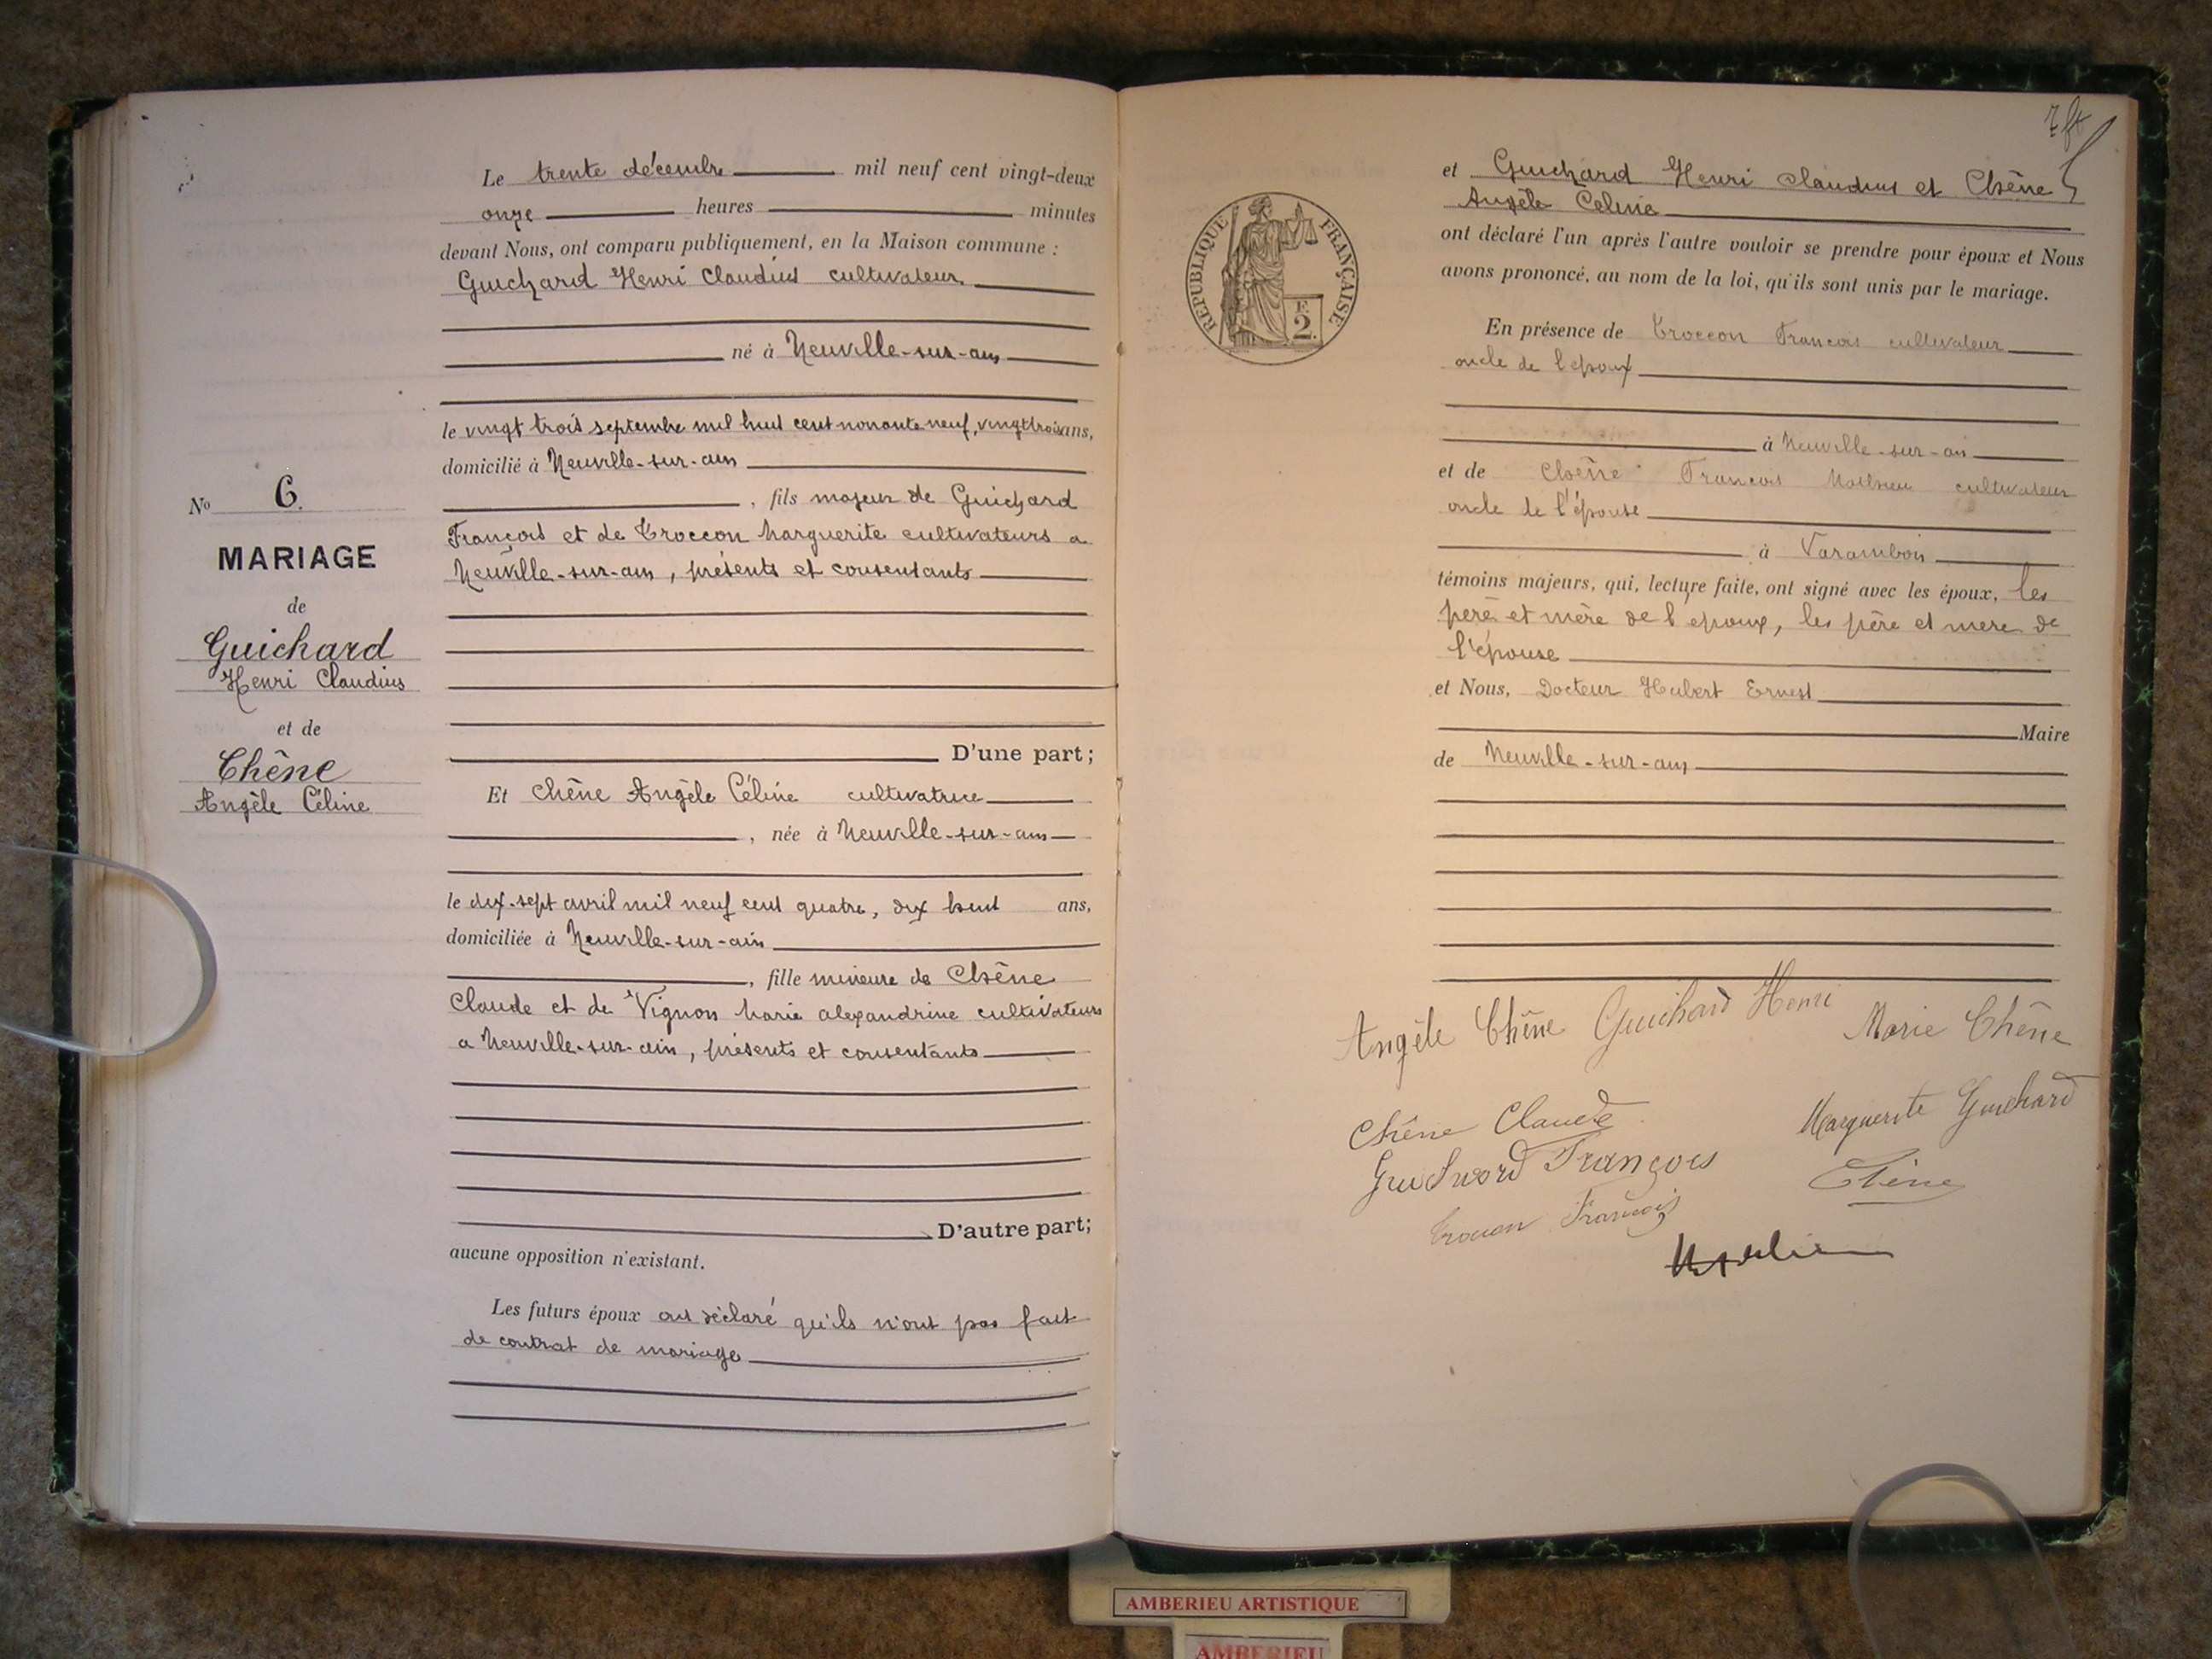 Le trente décembre mil neuf cent vingt-deux
onze heures minutes
devant Nous, ont comparu publiquement, en la Maison commune :
Guichard Henri Claudius cultivateur
né à Neuville-sur-ain
le vingt trois septembre mil huit cent nonante neuf, vingt trois ans,
domicilié à Neuville-sur-ain
, fils majeur de Guichard
François et de Troccon Marguerite cultivateurs a
Neuville-sur-ain, présents et consentants
D'une part;
Et Chêne Angèle Céline cultivatrice
, née à Neuville-sur-ain
le dix-sept avril mil neuf cent quatre, dix huit ans,
domiciliée à Neuville-sur-ain
, fille mineure de Chêne
Claude et de Vignon Marie alexandrine cultivateurs
a Neuville-sur-ain, présents et consentants
D'autre part;
aucune opposition n'existant.
Les futurs époux ont déclaré qu'ils n'ont pas fait
de contrat de mariage
No 6.
MARIAGE
de
Guichard
Henri Claudius
et de
Chêne
Angèle Céline
RÉPUBLIQUE FRANÇAISE
F.
2.
et Guichard Henri Claudius et Chêne
Angèle Celine
ont déclaré l'un après l'autre vouloir se prendre pour époux et Nous
avons prononcé, au nom de la loi, qu'ils sont unis par le mariage.
En présence de Troccon Francois cultivateur
oncle de l'epoux
à Neuville-sur-ain
et de Chêne Francois Mathieu cultivateur
oncle de l'épouse
à Varambon
témoins majeurs, qui, lecture faite, ont signé avec les époux, les
père et mère de l'epoux, les père et mere de
l'épouse
et Nous, Docteur Hubert Ernest
Maire
de Neuville-sur-ain
Angèle Chêne Guichard Henri Marie Chêne
Chêne Claude Marguerite Guichard
Guichard François Chêne
Troccon François
AMBERIEU ARTISTIQUE
AMBERIEU